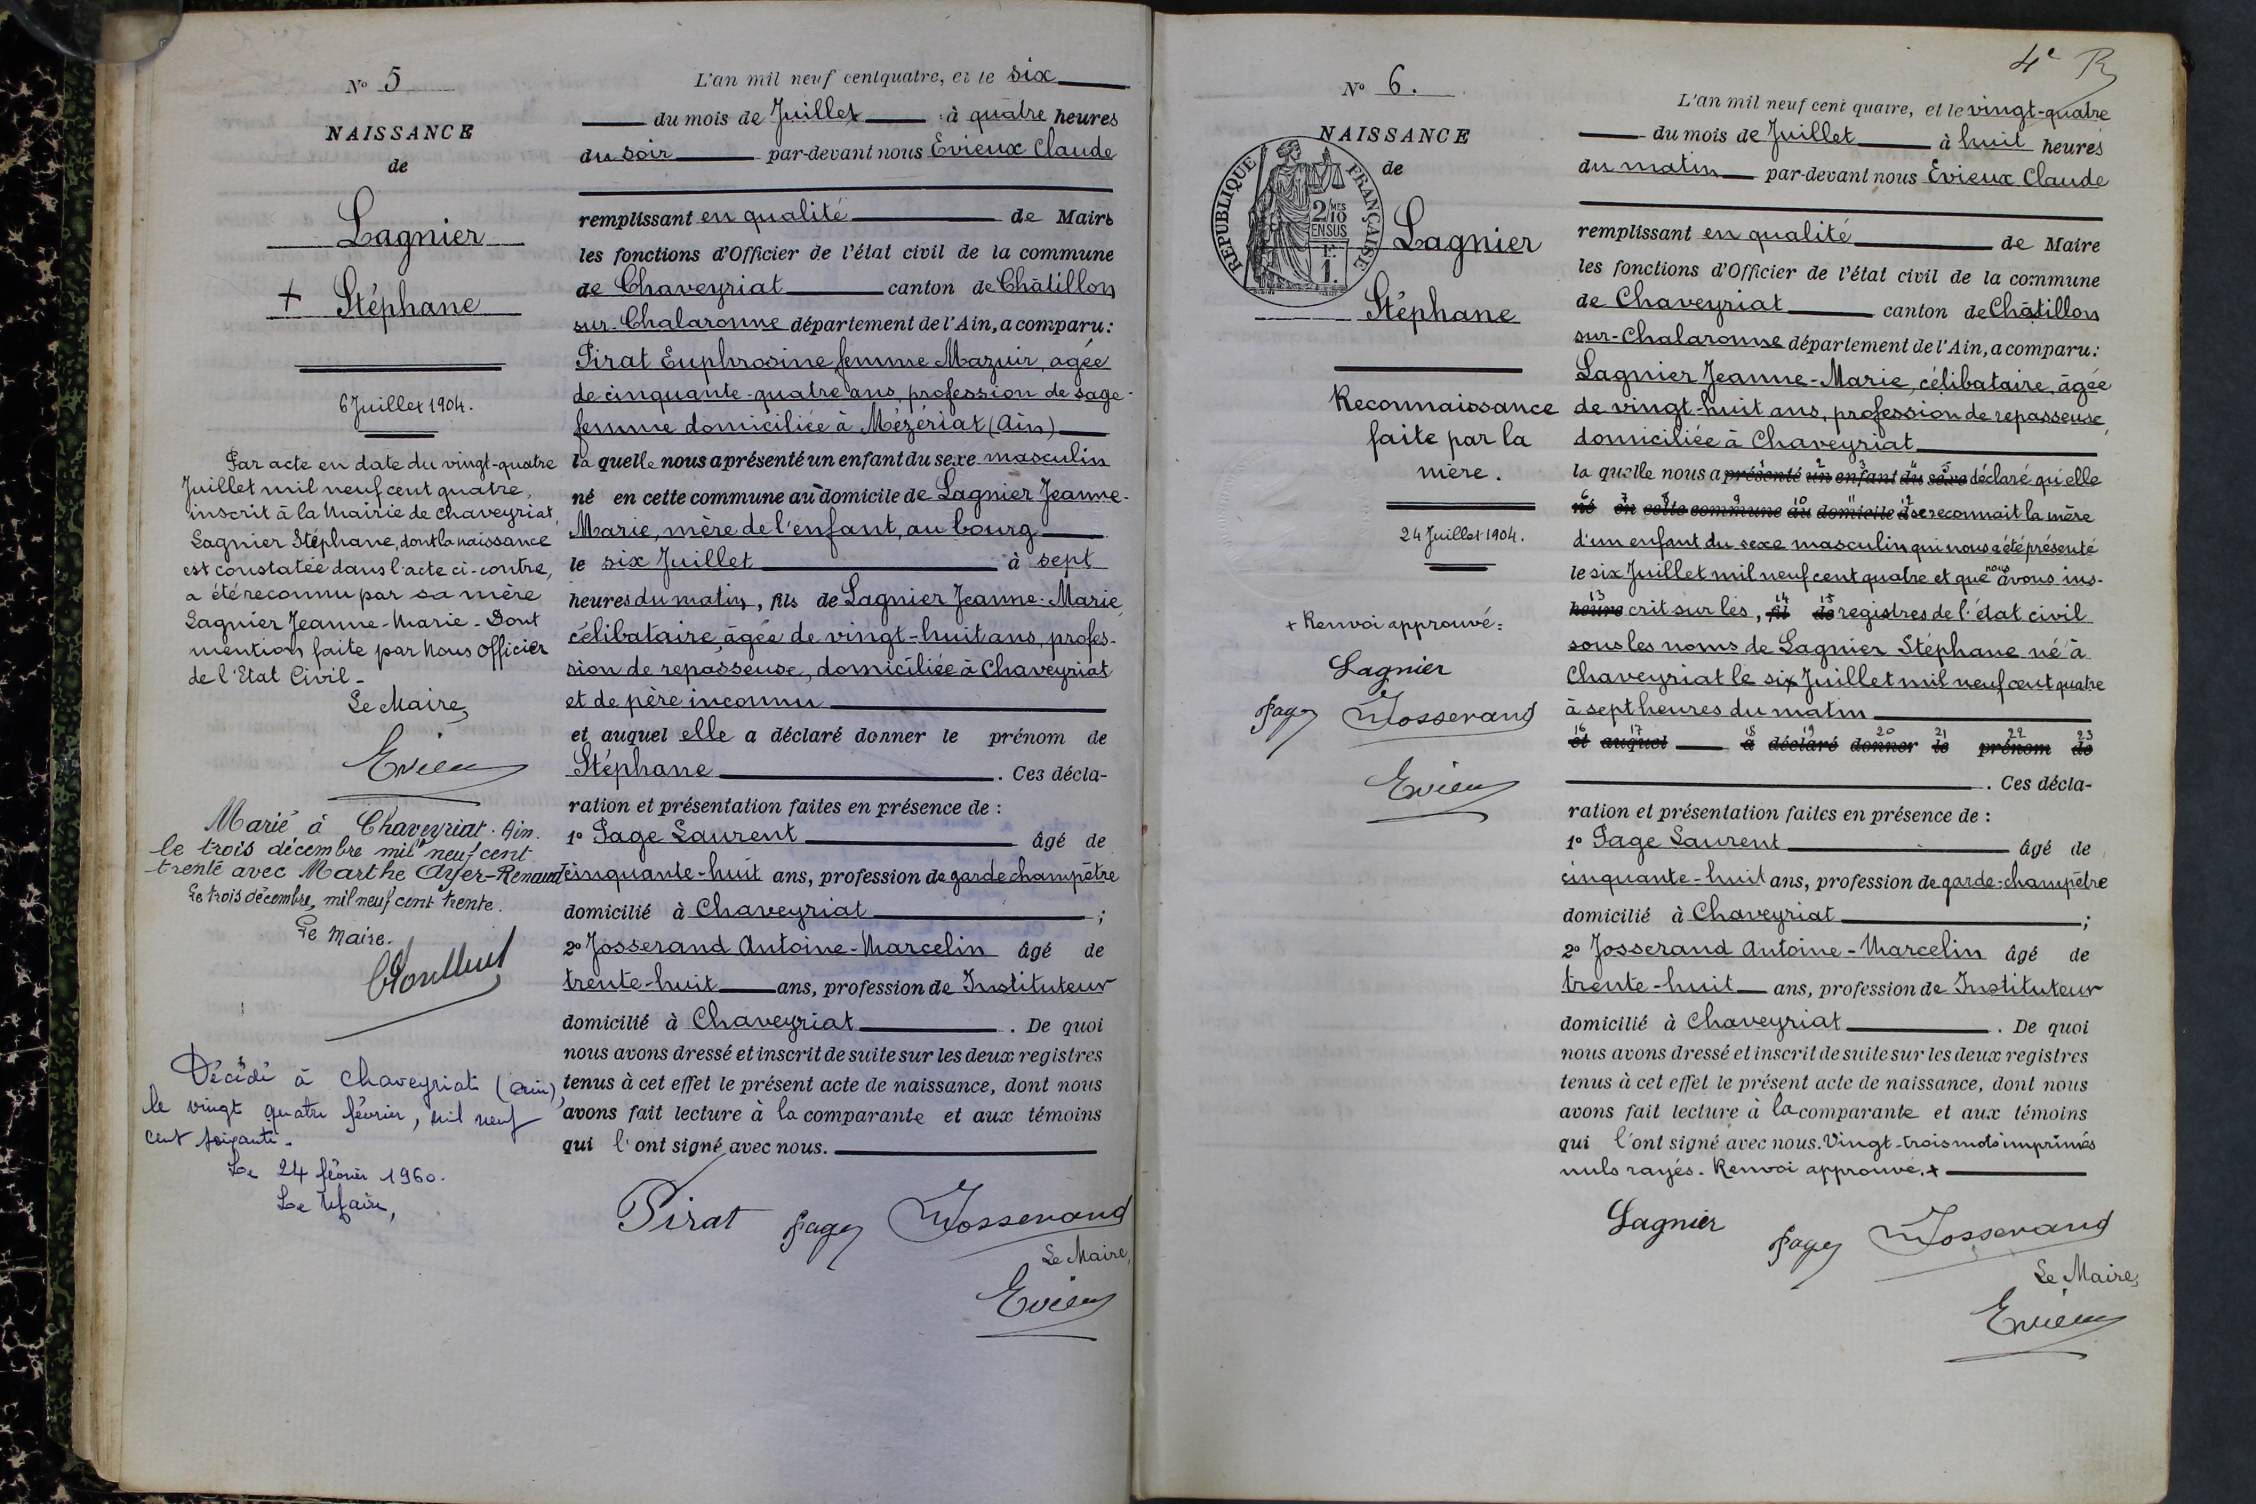 Nº 5
NAISSANCE
de
Lagnier
+ Stéphane
6 Juillet 1904.
Par acte en date du vingt-quatre
Juillet mil neuf cent quatre,
inscrit à la Mairie de Chaveyriat,
Lagnier Stéphane, dont la naissance
est constatée dans l'acte ci-contre,
a été reconnu par sa mère
Lagnier Jeanne-Marie - Dont
mention faite par Nous Officier
de l'Etat Civil -
Le Maire,
Evieux
Marié à Chaveyriat. Ain.
le trois décembre mil neuf cent
trente avec Marthe Ayer-Renaud
Le trois décembre, mil neuf cent trente.
Le Maire.
Décédé à Chaveyriat (Ain),
le vingt quatre février, mil neuf
cent soixante.
Le 24 février 1960.
Le Maire,
L'an mil neuf cent quatre, et le six
du mois de Juillet à quatre heures
du soir par-devant nous Evieux Claude
remplissant en qualité de Maire
les fonctions d'Officier de l'état civil de la commune
de Chaveyriat canton de Châtillon
sur-Chalaronne département de l'Ain, a comparu:
Pirat Euphrosine femme Mazuir, agée
de cinquante-quatre ans, profession de sage-
femme domiciliée à Mézériat (Ain)
la quelle nous a présenté un enfant du sexe masculin
né en cette commune au domicile de Lagnier Jeanne-
Marie, mère de l'enfant, au bourg
le six Juillet à sept
heures du matin, fils de Lagnier Jeanne-Marie,
célibataire, âgée de vingt-huit ans, profes-
sion de repasseuse, domiciliée à Chaveyriat
et de père inconnu
et auquel elle a déclaré donner le prénom de
Stéphane. Ces décla-
ration et présentation faites en présence de :
1º Page Laurent âgé de
cinquante-huit ans, profession de garde champêtre
domicilié à Chaveyriat ;
2º Josserand Antoine-Marcelin âgé de
trente-huit ans, profession de Instituteur
domicilié à Chaveyriat. De quoi
nous avons dressé et inscrit de suite sur les deux registres
tenus à cet effet le présent acte de naissance, dont nous
avons fait lecture à la comparante et aux témoins
qui l'ont signé avec nous.
Pirat Page Josserand
Le Maire,
Evieux
4e R
Nº 6.
NAISSANCE
de
RÉPUBLIQUE FRANÇAISE
2/10 MES
EN SUS
1 F.
Lagnier
Stéphane
Reconnaissance
faite par la
mère.
24 Juillet 1904.
+ Renvoi approuvé:
Lagnier
Page Josserand
Evieux
L'an mil neuf cent quatre, et le vingt-quatre
du mois de Juillet à huit heures
du matin par-devant nous Evieux Claude
remplissant en qualité de Maire
les fonctions d'Officier de l'état civil de la commune
de Chaveyriat canton de Châtillon
sur-Chalaronne département de l'Ain, a comparu:
Lagnier Jeanne-Marie, célibataire, âgée
de vingt-huit ans, profession de repasseuse,
domiciliée à Chaveyriat
la quelle nous a présenté un enfant du sexe déclaré qu'elle
né en cette commune au domicile d se reconnait la mère
d'un enfant du sexe masculin qui nous a été présenté
le six Juillet mil neuf cent quatre et que nous avons ins-
heure crit sur les, fil de registres de l'état civil
sous les noms de Lagnier Stéphane né à
Chaveyriat le six Juillet mil neuf cent quatre
à sept heures du matin
16 17 18 19 20 21 22 23
et auquel a déclaré donner le prénom de
. Ces décla-
ration et présentation faites en présence de :
1º Page Laurent âgé de
cinquante-huit ans, profession de garde-champêtre
domicilié à Chaveyriat ;
2º Josserand Antoine-Marcelin âgé de
trente-huit ans, profession de Instituteur
domicilié à Chaveyriat. De quoi
nous avons dressé et inscrit de suite sur les deux registres
tenus à cet effet le présent acte de naissance, dont nous
avons fait lecture à la comparante et aux témoins
qui l'ont signé avec nous. Vingt-trois mots imprimés
nuls rayés. Renvoi approuvé. +
Lagnier Page Josserand
Le Maire,
Evieux